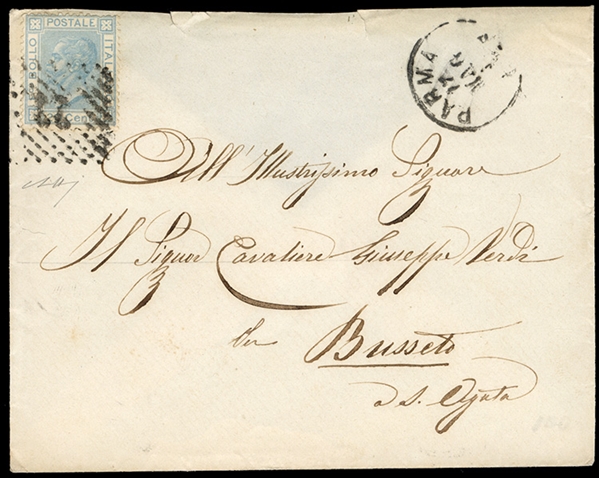 BOLLO POSTALE ITALI
20 Cent
PARMA
All' Illustrissimo Signore
Il Signor Cavaliere Giuseppe Verdi
per Busseto
a S. Agata